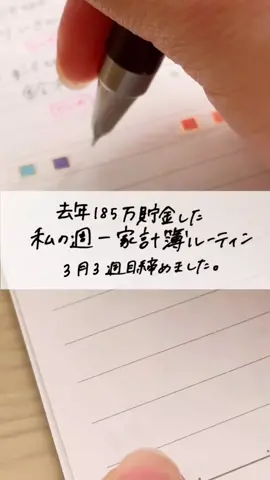 去年185万貯金した
私の週一家計簿ルーティン
3月3週目締めました。